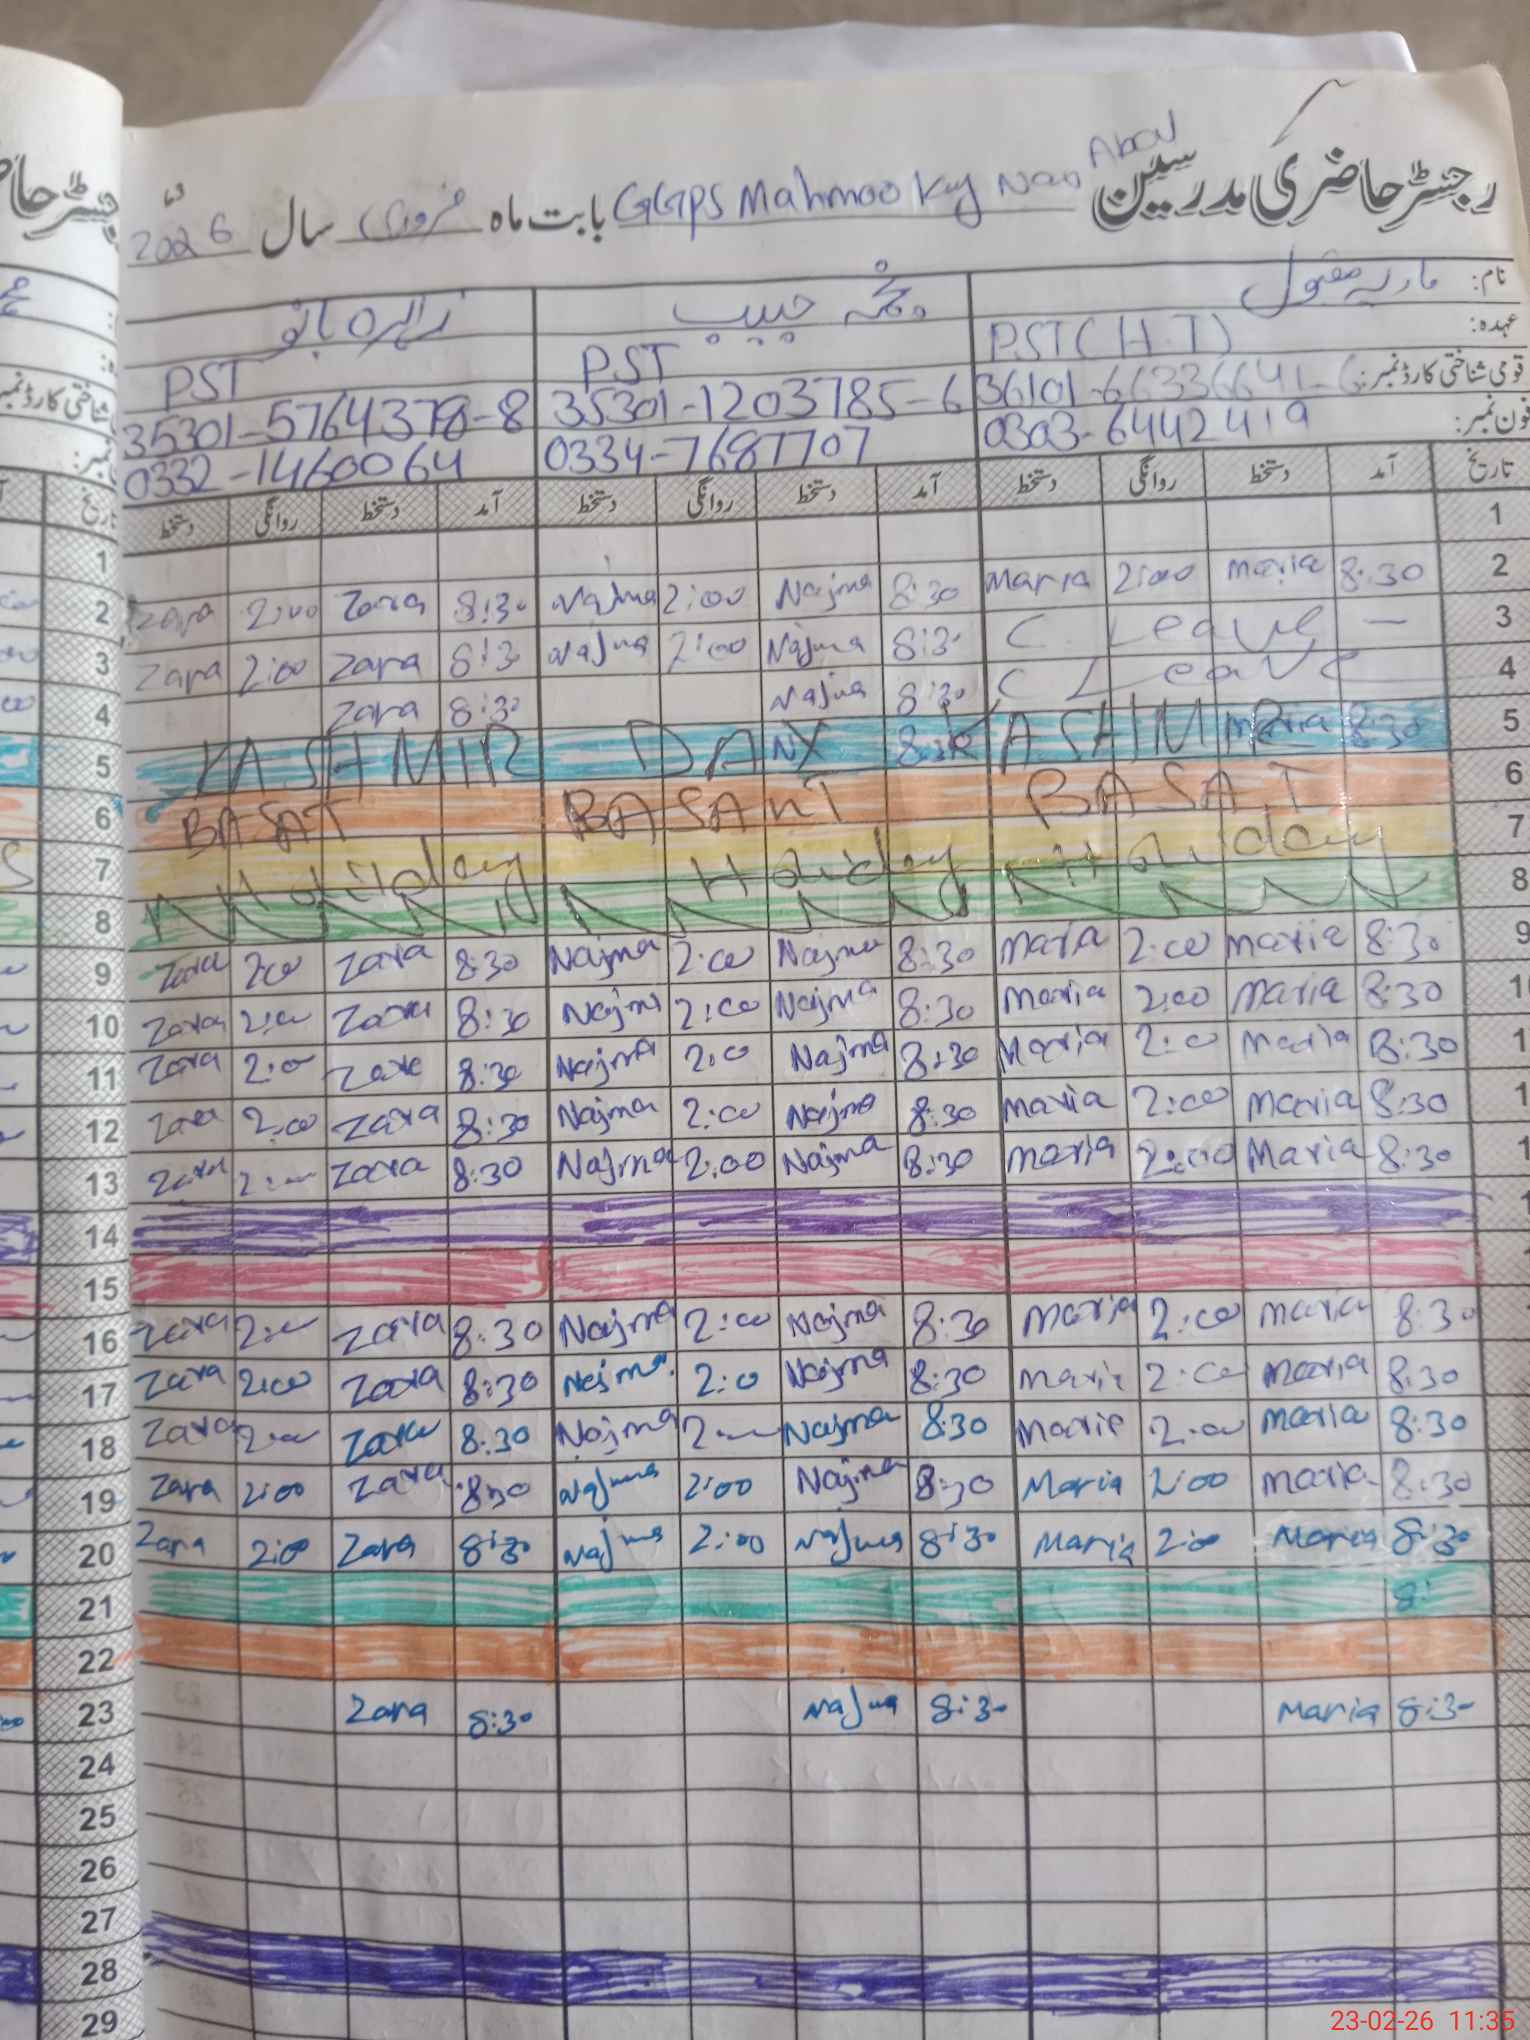 رجسٹر حاضری مدرسین GGPS Mahmoo Kay Nao Abad بابت ماہ فروری سال 2026
نام: ماریہ مقبول نجمہ حبیب زاہرہ بانو
عہدہ: PST (H.T) PST PST
قومی شناختی کارڈ نمبر: 36101-66336641-6 35301-1203785-6 35301-5764378-8
فون نمبر: 0303-6442419 0334-7687707 0332-1460064
تاریخ آمد دستخط روانگی دستخط آمد دستخط روانگی دستخط آمد دستخط روانگی دستخط
1 1
2 Zara 2:00 Zara 8:30 Najma 2:00 Najma 8:30 Maria 2:00 Maria 8:30 2
3 Zara 2:00 Zara 8:30 Najma 2:00 Najma 8:30 C. Leave - 3
4 Zara 8:30 Najma 8:30 C Leave 4
5 KASHMIR DAY 8:30 KASHMIR Maria 8:30 5
6 BASAT BASANT BASAT 6
7 Holiday Holiday Holiday 7
8 8
9 Zara 2:00 Zara 8:30 Najma 2:00 Najma 8:30 Maria 2:00 Maria 8:30 9
10 Zara 2:00 Zara 8:30 Najma 2:00 Najma 8:30 Maria 2:00 Maria 8:30
11 Zara 2:00 Zara 8:30 Najma 2:0 Najma 8:30 Maria 2:0 Maria 8:30
12 Zara 2:00 Zara 8:30 Najma 2:00 Najma 8:30 Maria 2:00 Maria 8:30
13 Zara 2:00 Zara 8:30 Najma 2:00 Najma 8:30 Maria 2:00 Maria 8:30
14
15
16 Zara 2:00 Zara 8:30 Najma 2:00 Najma 8:30 Maria 2:00 Maria 8:30
17 Zara 2:00 Zara 8:30 Najma 2:0 Najma 8:30 Maria 2:00 Maria 8:30
18 Zara 2:00 Zara 8:30 Najma 2:00 Najma 8:30 Maria 2:00 Maria 8:30
19 Zara 2:00 Zara 8:30 Najma 2:00 Najma 8:30 Maria 2:00 Maria 8:30
20 Zara 2:00 Zara 8:30 Najma 2:00 Najma 8:30 Maria 2:00 Maria 8:30
21 8:
22
23 Zara 8:30 Najma 8:30 Maria 8:30
24
25
26
27
28
29
23-02-26 11:35